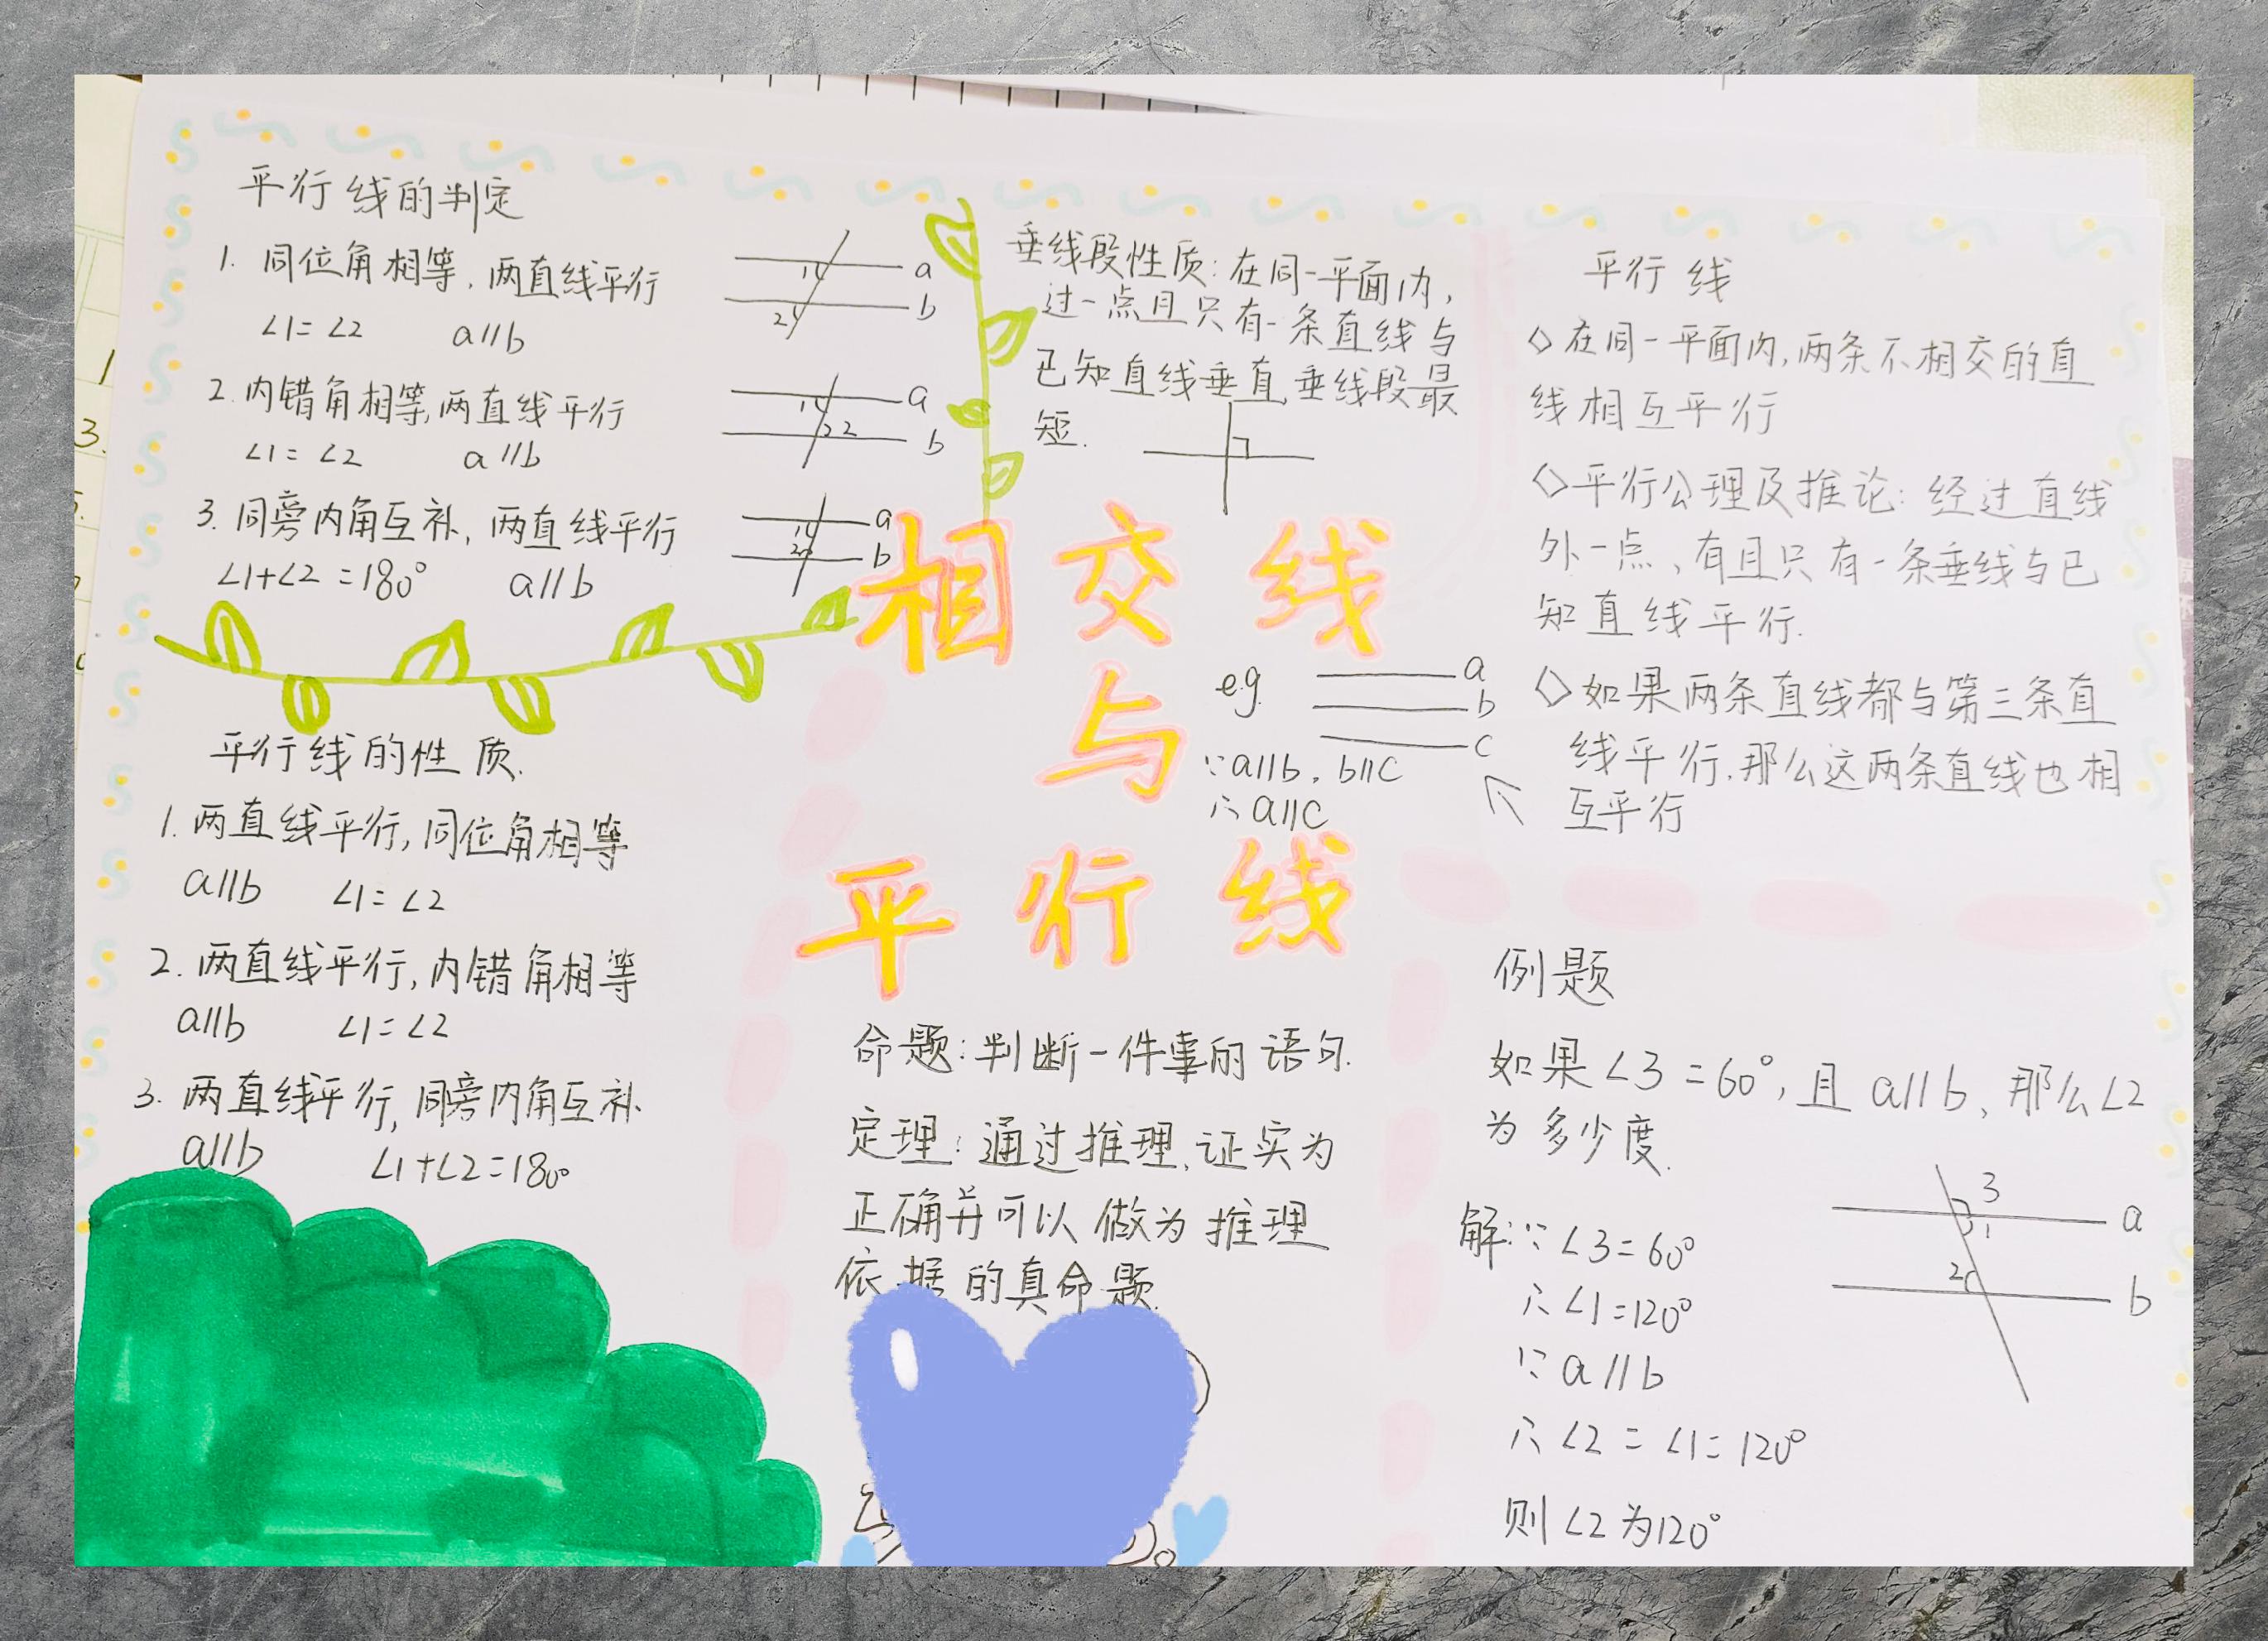 平行线的判定
1. 同位角相等，两直线平行
∠1=∠2 a//b
1
a
2
b
2. 内错角相等，两直线平行
∠1=∠2 a//b
1
a
2 2
b
3. 同旁内角互补，两直线平行
∠1+∠2=180° a//b
1
a
2
b
平行线的性质.
1. 两直线平行，同位角相等
a//b ∠1=∠2
2. 两直线平行，内错角相等
a//b ∠1=∠2
3. 两直线平行，同旁内角互补
a//b ∠1+∠2=180°
垂线段性质：在同一平面内，
过一点且只有一条直线与
已知直线垂直，垂线段最
短.
相交线
与
平行线
e.g.
a
b
c
∵a//b，b//c
∴a//c
命题：判断一件事的语句.
定理：通过推理，证实为
正确并可以做为推理
依据的真命题.
平行线
◇在同一平面内，两条不相交的直
线相互平行
◇平行公理及推论：经过直线
外一点、有且只有一条垂线与已
知直线平行.
◇如果两条直线都与第三条直
线平行，那么这两条直线也相
互平行
例题
如果∠3=60°，且a//b、那么∠2
为多少度.
解：∵∠3=60°
∴∠1=120°
∵a//b
∴∠2=∠1=120°
则∠2为120°
3
1
a
2
b